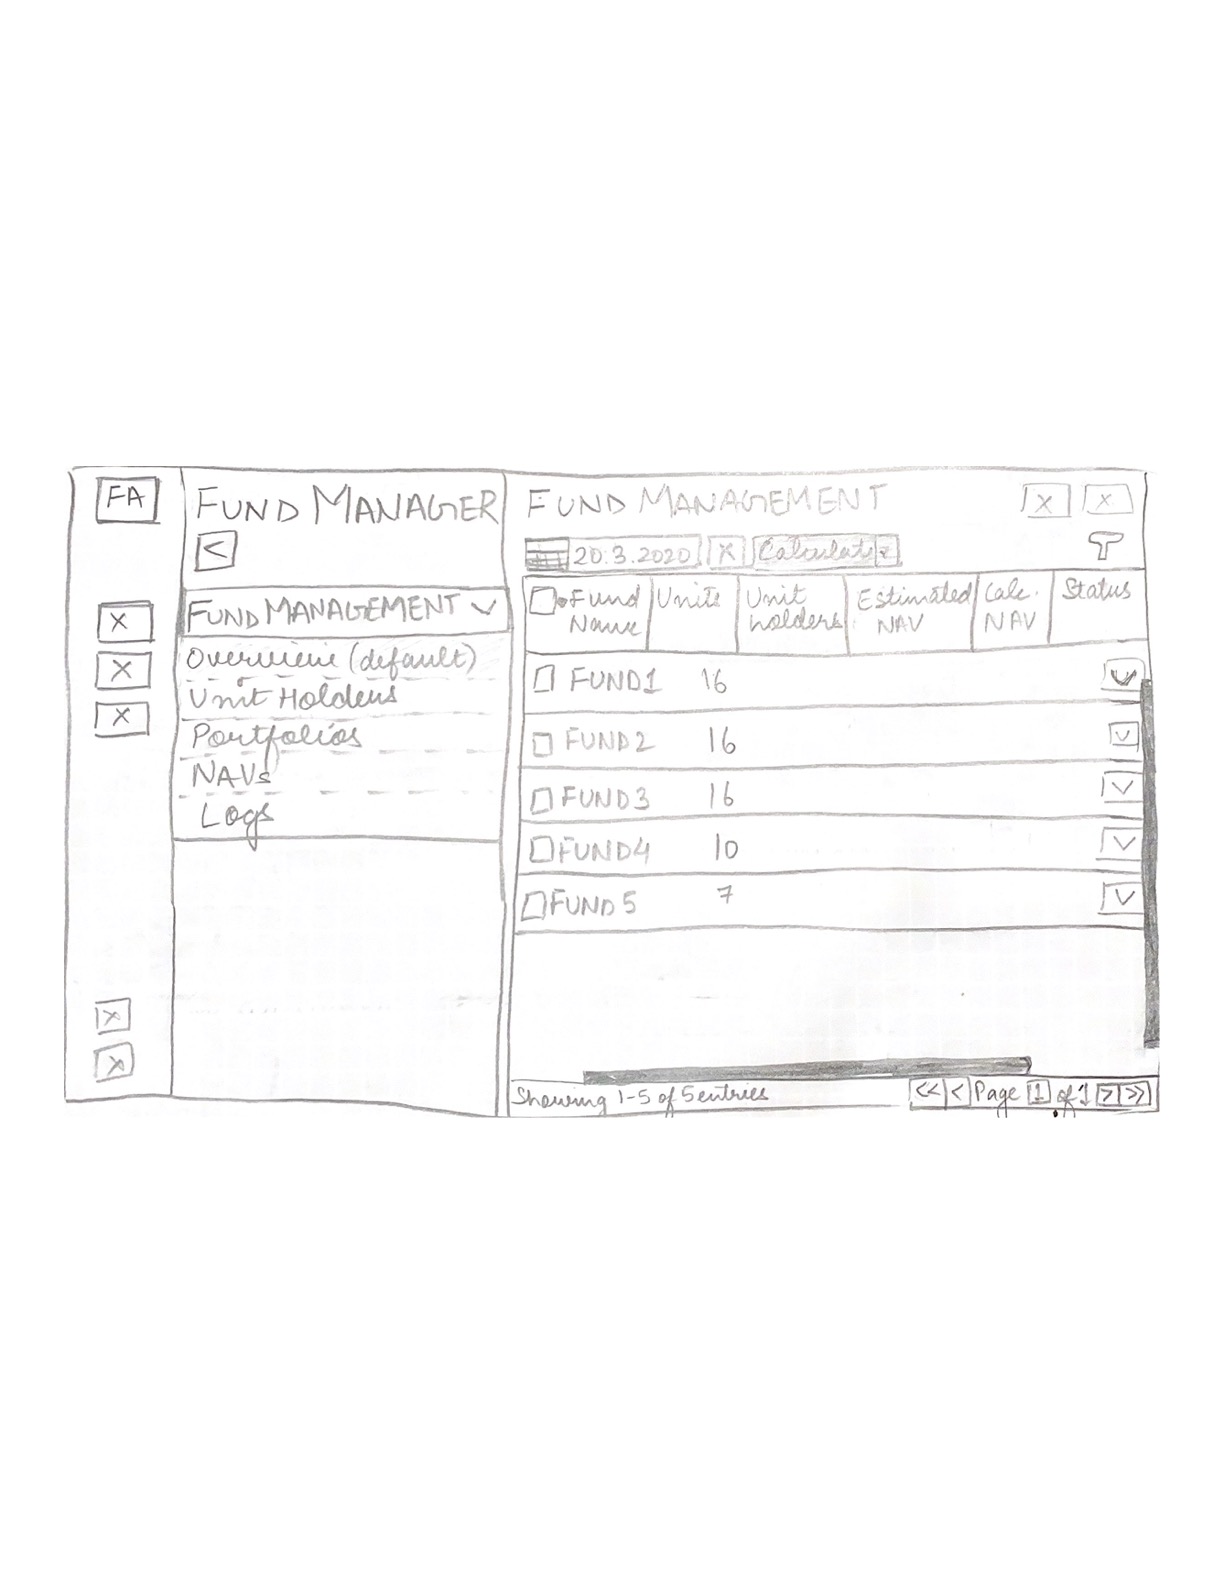 FA
X
X
X
X
X
FUND MANAGER
<
FUND MANAGEMENT
Overview (default)
Unit Holders
Portfolios
NAVs
Logs
FUND MANAGEMENT
X X
20.3.2020 X Calculate
Fund Name
Units
Unit holders
Estimated NAV
Calc. NAV
Status
FUND1 16
FUND2 16
FUND3 16
FUND4 10
FUND5 7
Showing 1-5 of 5 entries
<< < Page 1 of 1 > >>